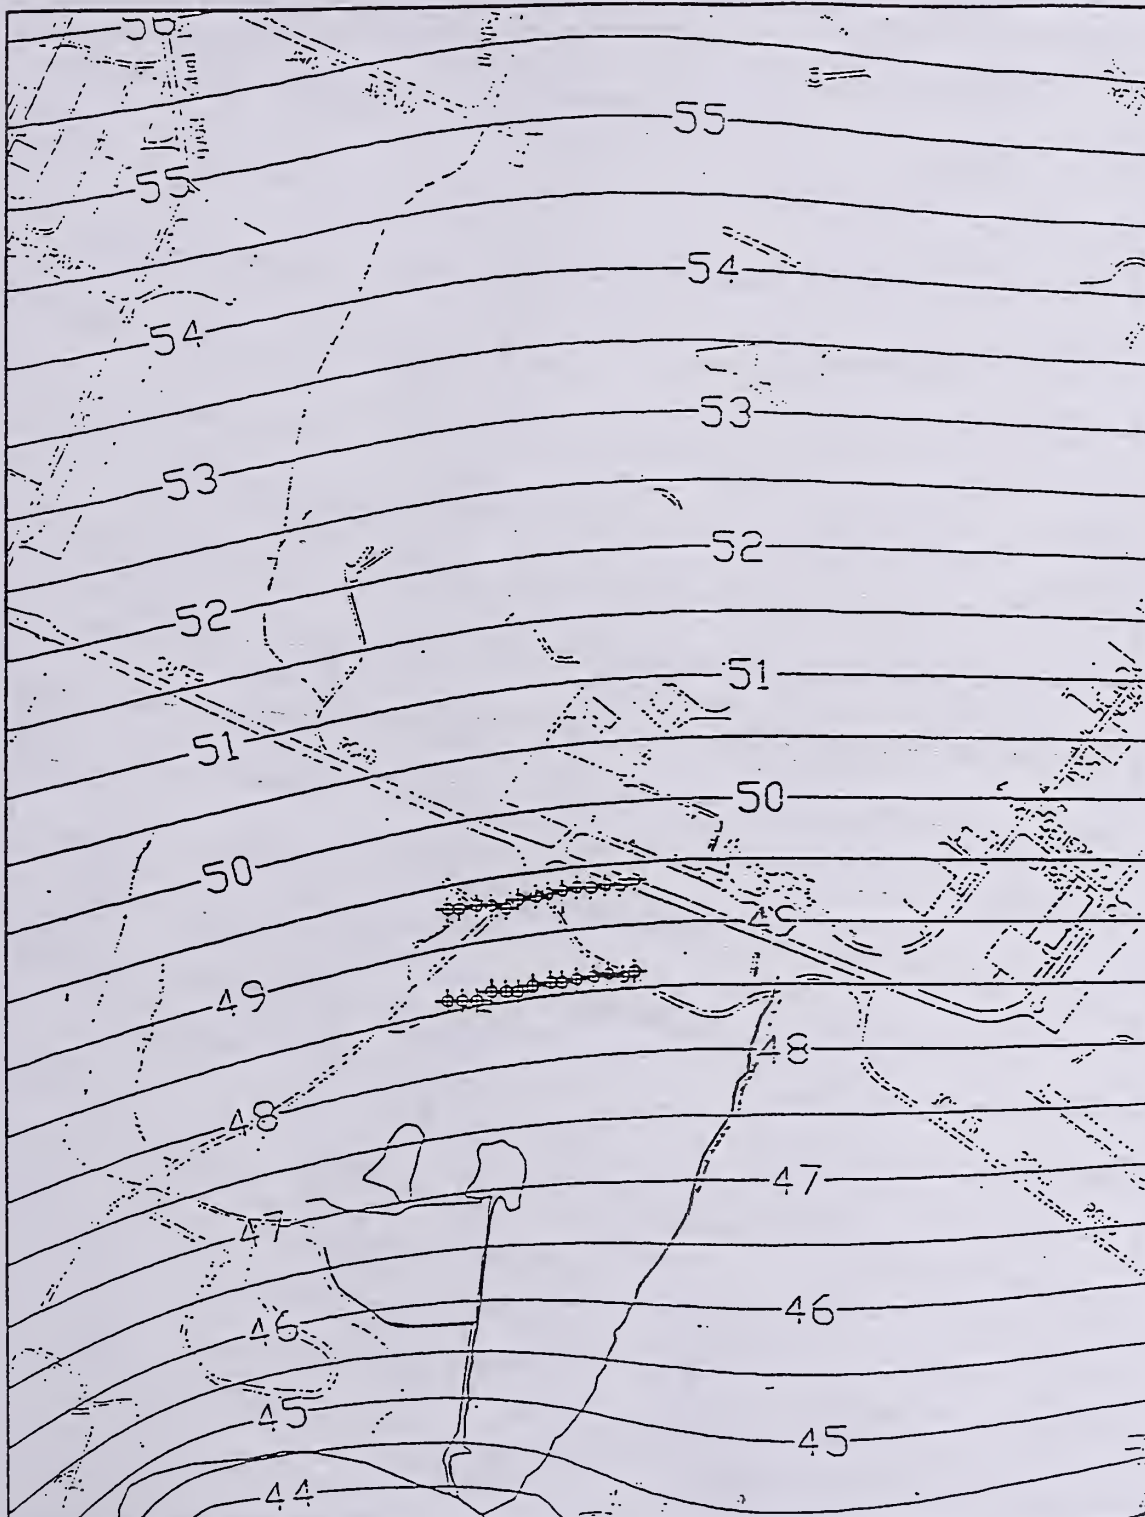 56
55
55
54
54
53
53
52
52
51
51
50
50
49
49
48
48
47
47
46
46
45
45
44